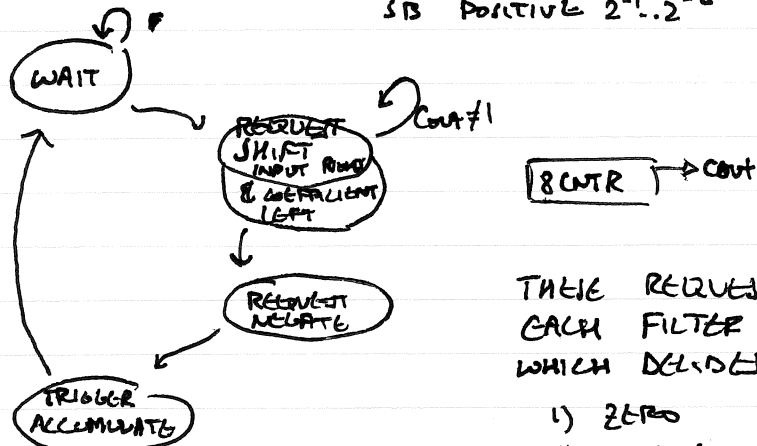 SB POSITIVE 2⁻¹..2
WAIT
REQUEST
SHIFT
INPUT RIGHT
& COEFFICIENT
LEFT
Cout≠1
8 CNTR
Cout
REQUEST
NEGATE
TRIGGER
ACCUMULATE
THESE REQUES
EACH FILTER
WHICH DECIDES
1) ZERO